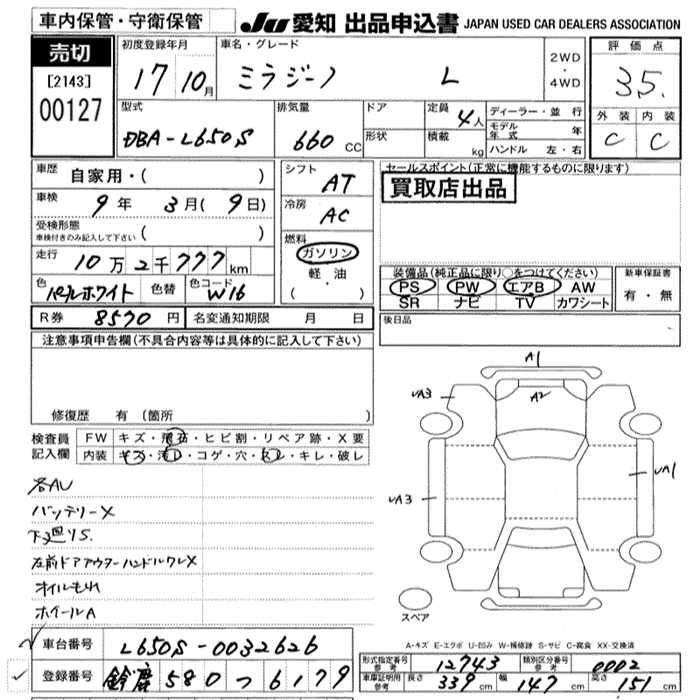 車内保管・守衛保管
JU 愛知 出品申込書 JAPAN USED CAR DEALERS ASSOCIATION
売切
[2143]
00127
初度登録年月
17 10月
車名・グレード
ミラジーノ L
2WD
・
4WD
評価点
3.5
外装 内装
C C
型式
DBA-L650S
排気量
660 CC
ドア
形状
定員 4人
積載 kg
ディーラー・並行
モデル年式 年
ハンドル 左・右
車歴 自家用・( )
車検 9年 3月(9日)
受検形態
車検付きのみ記入して下さい ( )
走行 10万2千777km
色 パールホワイト 色替 色コード W16
シフト AT
冷房 AC
燃料
ガソリン
軽油
( ・ )
セールスポイント(正常に機能するものに限ります)
買取店出品
装備品(純正品に限り○をつけてください)
PS PW エアB AW
SR ナビ TV カワシート
新車保証書
有・無
R券 8570円 名変通知期限 月 日
後日品
注意事項申告欄(不具合内容等は具体的に記入して下さい)
修復歴 有(箇所 )
検査員記入欄
FW キズ・飛石・ヒビ割・リペア跡・X要
内装 キズ・汚れ・コゲ・穴・スレ・キレ・破レ
各AU
バッテリーX
下廻りS.
左前ドアアウターハンドルワレX
オイルもれ
ホイールA
A1
A2
UA3
UA3
UA1
スペア
A-キズ E-エクボ U-凹み W-補修跡 S-サビ C-腐食 XX-交換済
車台番号 L650S-0032626
登録番号 鈴鹿 580 つ 6179
形式指定番号 参考 12743 類別区分番号 参考 0002
車庫証明用 参考 長さ 339cm 幅 147cm 高さ 151cm